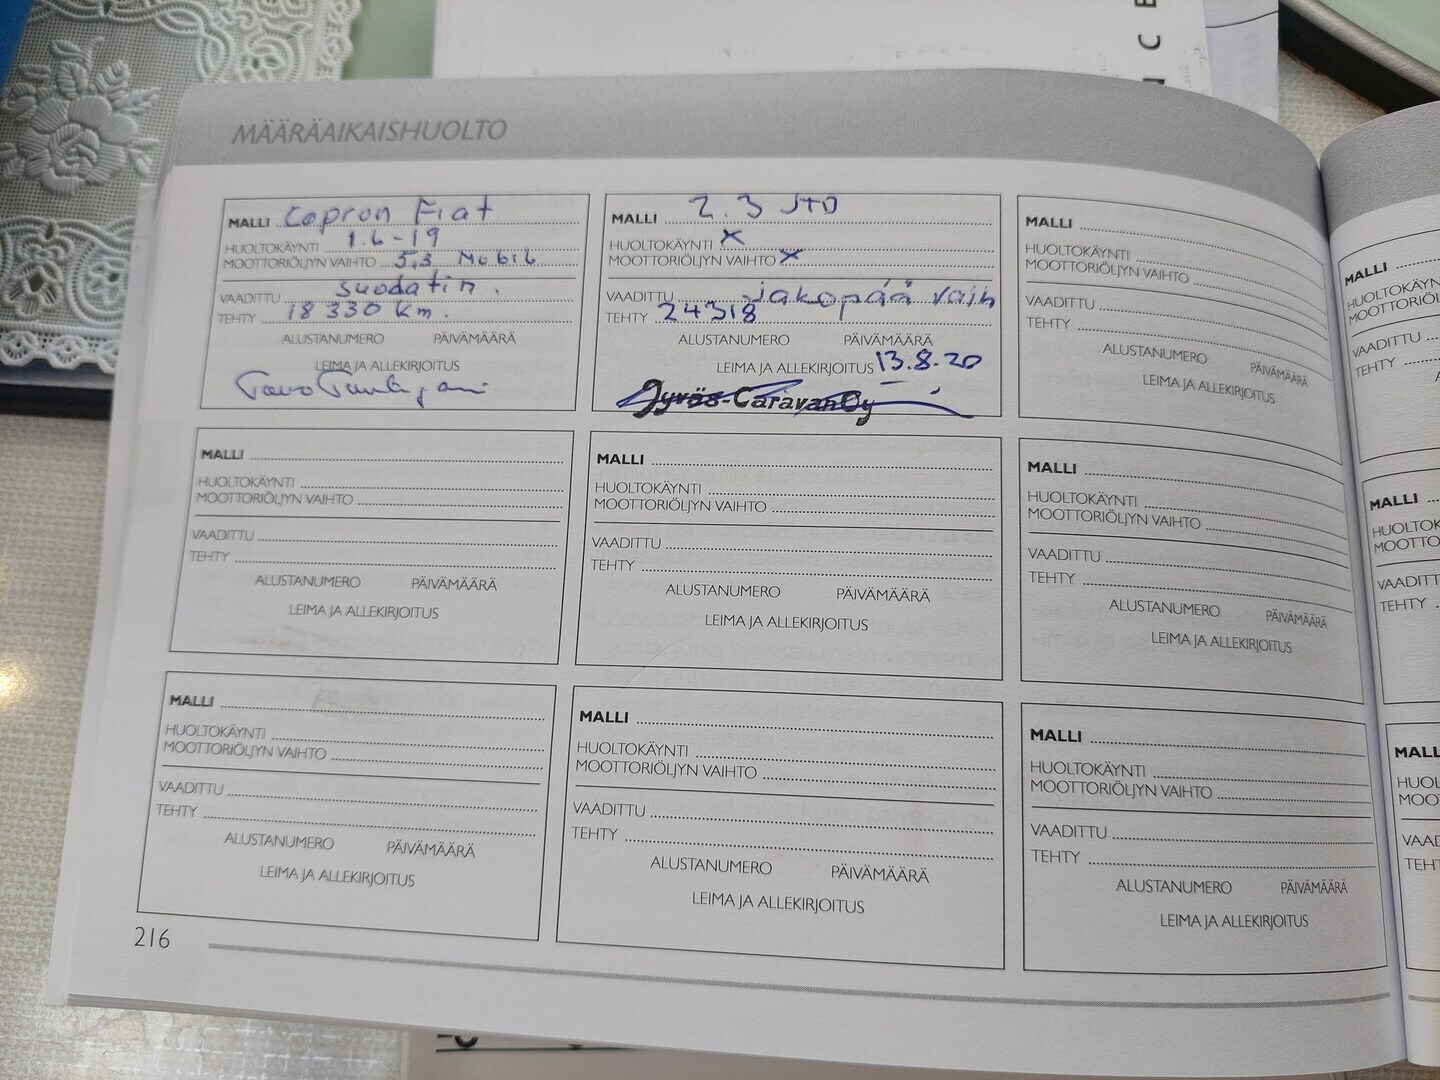 MÄÄRÄAIKAISHUOLTO
MALLI Capron Fiat
HUOLTOKÄYNTI 1.6-19
MOOTTORIÖLJYN VAIHTO 5,3 Mobil
VAADITTU suodatin.
TEHTY 18 330 km.
ALUSTANUMERO PÄIVÄMÄÄRÄ
LEIMA JA ALLEKIRJOITUS
MALLI 2.3 JTD
HUOLTOKÄYNTI x
MOOTTORIÖLJYN VAIHTO x
VAADITTU jakopää vaih
TEHTY 24318
ALUSTANUMERO PÄIVÄMÄÄRÄ
LEIMA JA ALLEKIRJOITUS 13.8.20
Jyväs-Caravan Oy
MALLI
HUOLTOKÄYNTI
MOOTTORIÖLJYN VAIHTO
VAADITTU
TEHTY
ALUSTANUMERO PÄIVÄMÄÄRÄ
LEIMA JA ALLEKIRJOITUS
MALLI
HUOLTOKÄYNTI
MOOTTORIÖLJYN VAIHTO
VAADITTU
TEHTY
ALUSTANUMERO PÄIVÄMÄÄRÄ
LEIMA JA ALLEKIRJOITUS
MALLI
HUOLTOKÄYNTI
MOOTTORIÖLJYN VAIHTO
VAADITTU
TEHTY
ALUSTANUMERO PÄIVÄMÄÄRÄ
LEIMA JA ALLEKIRJOITUS
MALLI
HUOLTOKÄYNTI
MOOTTORIÖLJYN VAIHTO
VAADITTU
TEHTY
ALUSTANUMERO PÄIVÄMÄÄRÄ
LEIMA JA ALLEKIRJOITUS
MALLI
HUOLTOKÄYNTI
MOOTTORIÖLJYN VAIHTO
VAADITTU
TEHTY
ALUSTANUMERO PÄIVÄMÄÄRÄ
LEIMA JA ALLEKIRJOITUS
MALLI
HUOLTOKÄYNTI
MOOTTORIÖLJYN VAIHTO
VAADITTU
TEHTY
ALUSTANUMERO PÄIVÄMÄÄRÄ
LEIMA JA ALLEKIRJOITUS
MALLI
HUOLTOKÄYNTI
MOOTTORIÖLJYN VAIHTO
VAADITTU
TEHTY
ALUSTANUMERO PÄIVÄMÄÄRÄ
LEIMA JA ALLEKIRJOITUS
216
MALLI
VAADITTU
TEHTY
MALLI
VAADITT
TEHTY
MALL